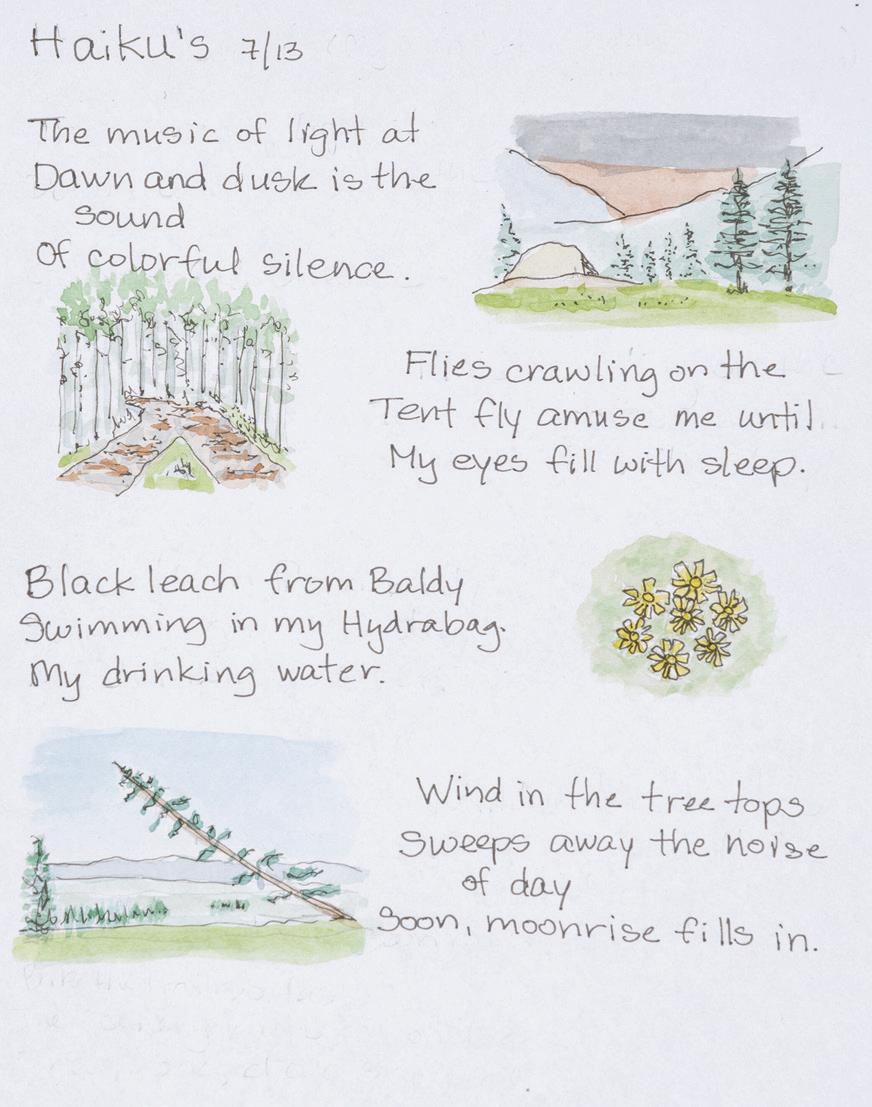 Haiku's 7/13
The music of light at
Dawn and dusk is the
sound
Of colorful silence.
Flies crawling on the
Tent fly amuse me until
My eyes fill with sleep.
Black leach from Baldy
Swimming in my Hydrabag.
My drinking water.
Wind in the tree tops
Sweeps away the noise
of day
Soon, moonrise fills in.